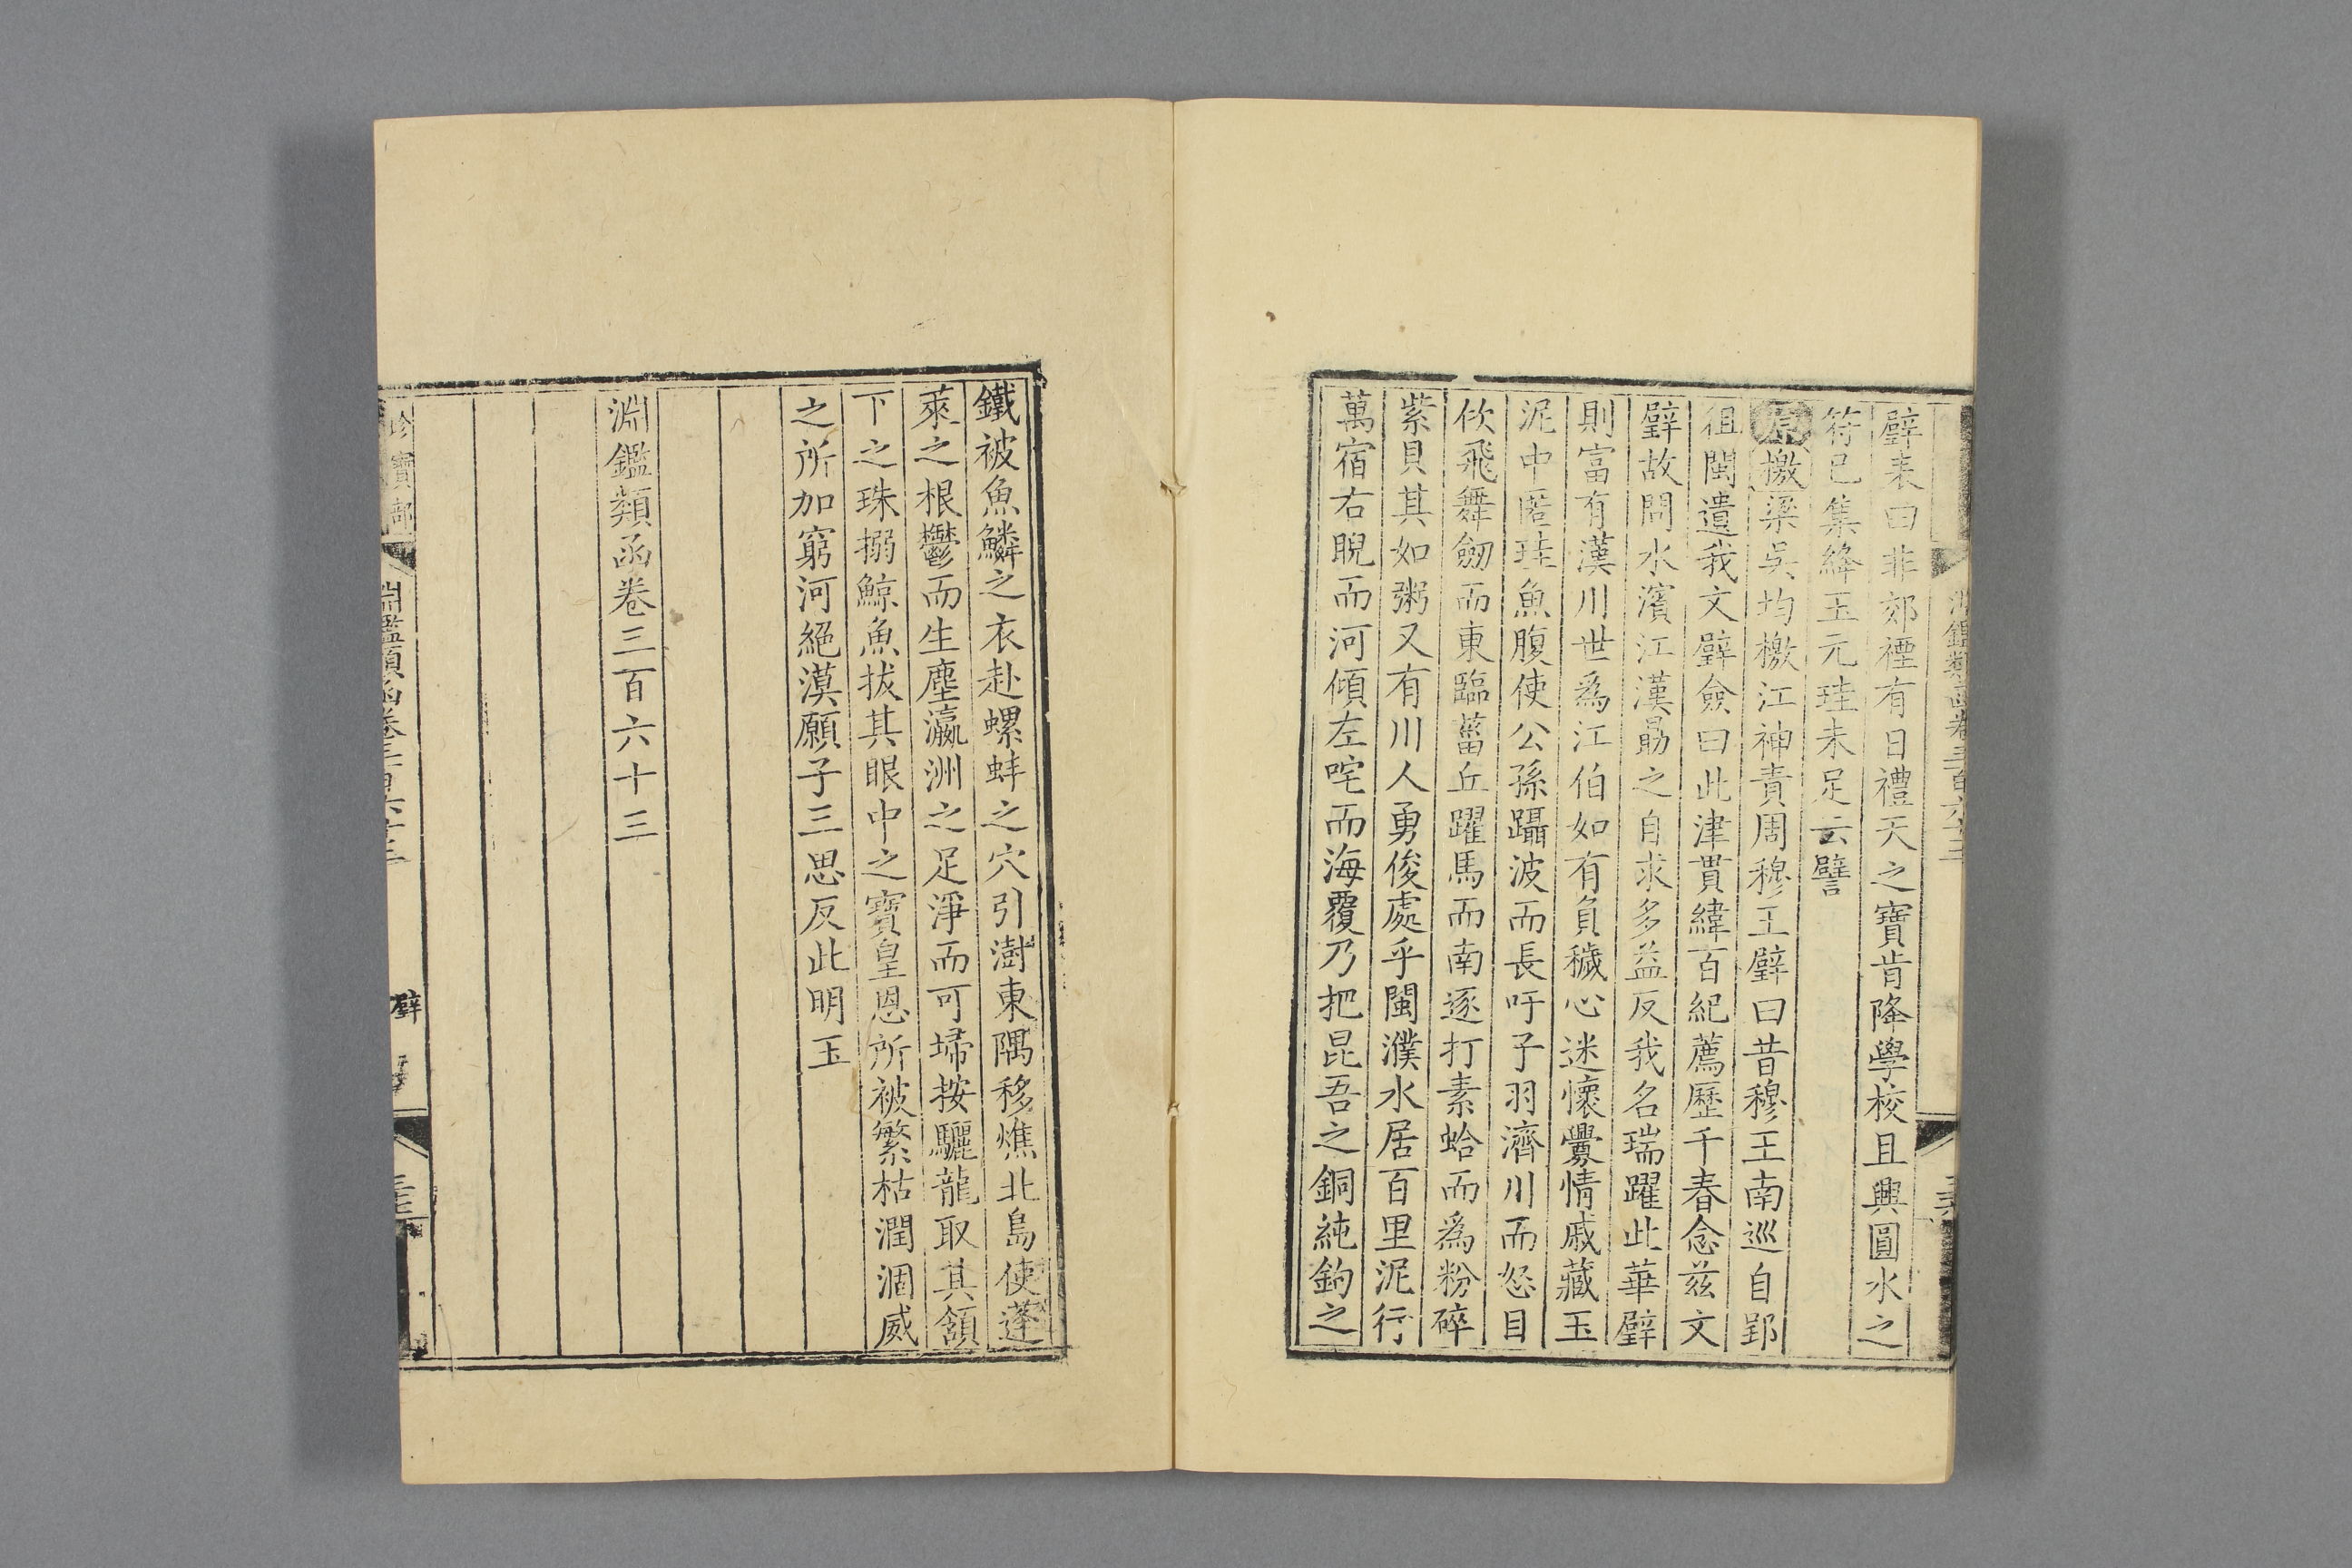 璧表曰非郊禋有日禮天之寶肯降學校且興圓水之
符已集絳玉元珪未足云譬
原檄梁吳均檄江神責周穆王璧曰昔穆王南巡自郢
徂閩遺我文璧僉曰此津貫緯百紀薦歷千春念茲文
璧故問水濱江漢勗之自求多益反我名瑞躍此華璧
則富有漢川世為江伯如有負穢心迷懷釁情戚藏玉
泥中匿珪魚腹使公孫躡波而長吁子羽濟川而怒目
佽飛舞劒而東臨菑丘躍馬而南逐打素蛤而為粉碎
紫貝其如粥又有川人勇俊處乎閩濮水居百里泥行
萬宿右睨而河傾左咤而海覆乃把昆吾之銅純鉤之
淵鑑類函卷三百六十三
三六
鐵被魚鱗之衣赴螺蚌之穴引澍東隅移燋北島使蓬
萊之根鬱而生塵瀛洲之足淨而可埽按驪龍取其頷
下之珠搦鯨魚拔其眼中之寶皇恩所被繁枯潤涸威
之所加窮河絕漠願子三思反此明玉
淵鑑類函卷三百六十三
珍寶部
淵鑑類函卷三百六十三
璧
三七